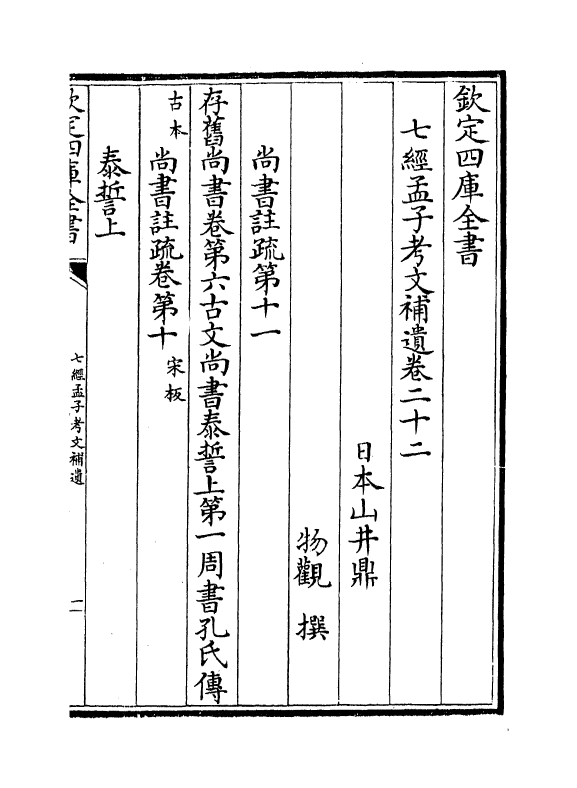 欽定四庫全書
七經孟子考文補遺卷二十二
日本山井鼎
物觀 撰
尚書註疏第十一
存舊尚書卷第六古文尚書泰誓上第一周書孔氏傳
古本 尚書註疏卷第十 宋板
泰誓上
欽定四庫全書
七經孟子考文補遺
一